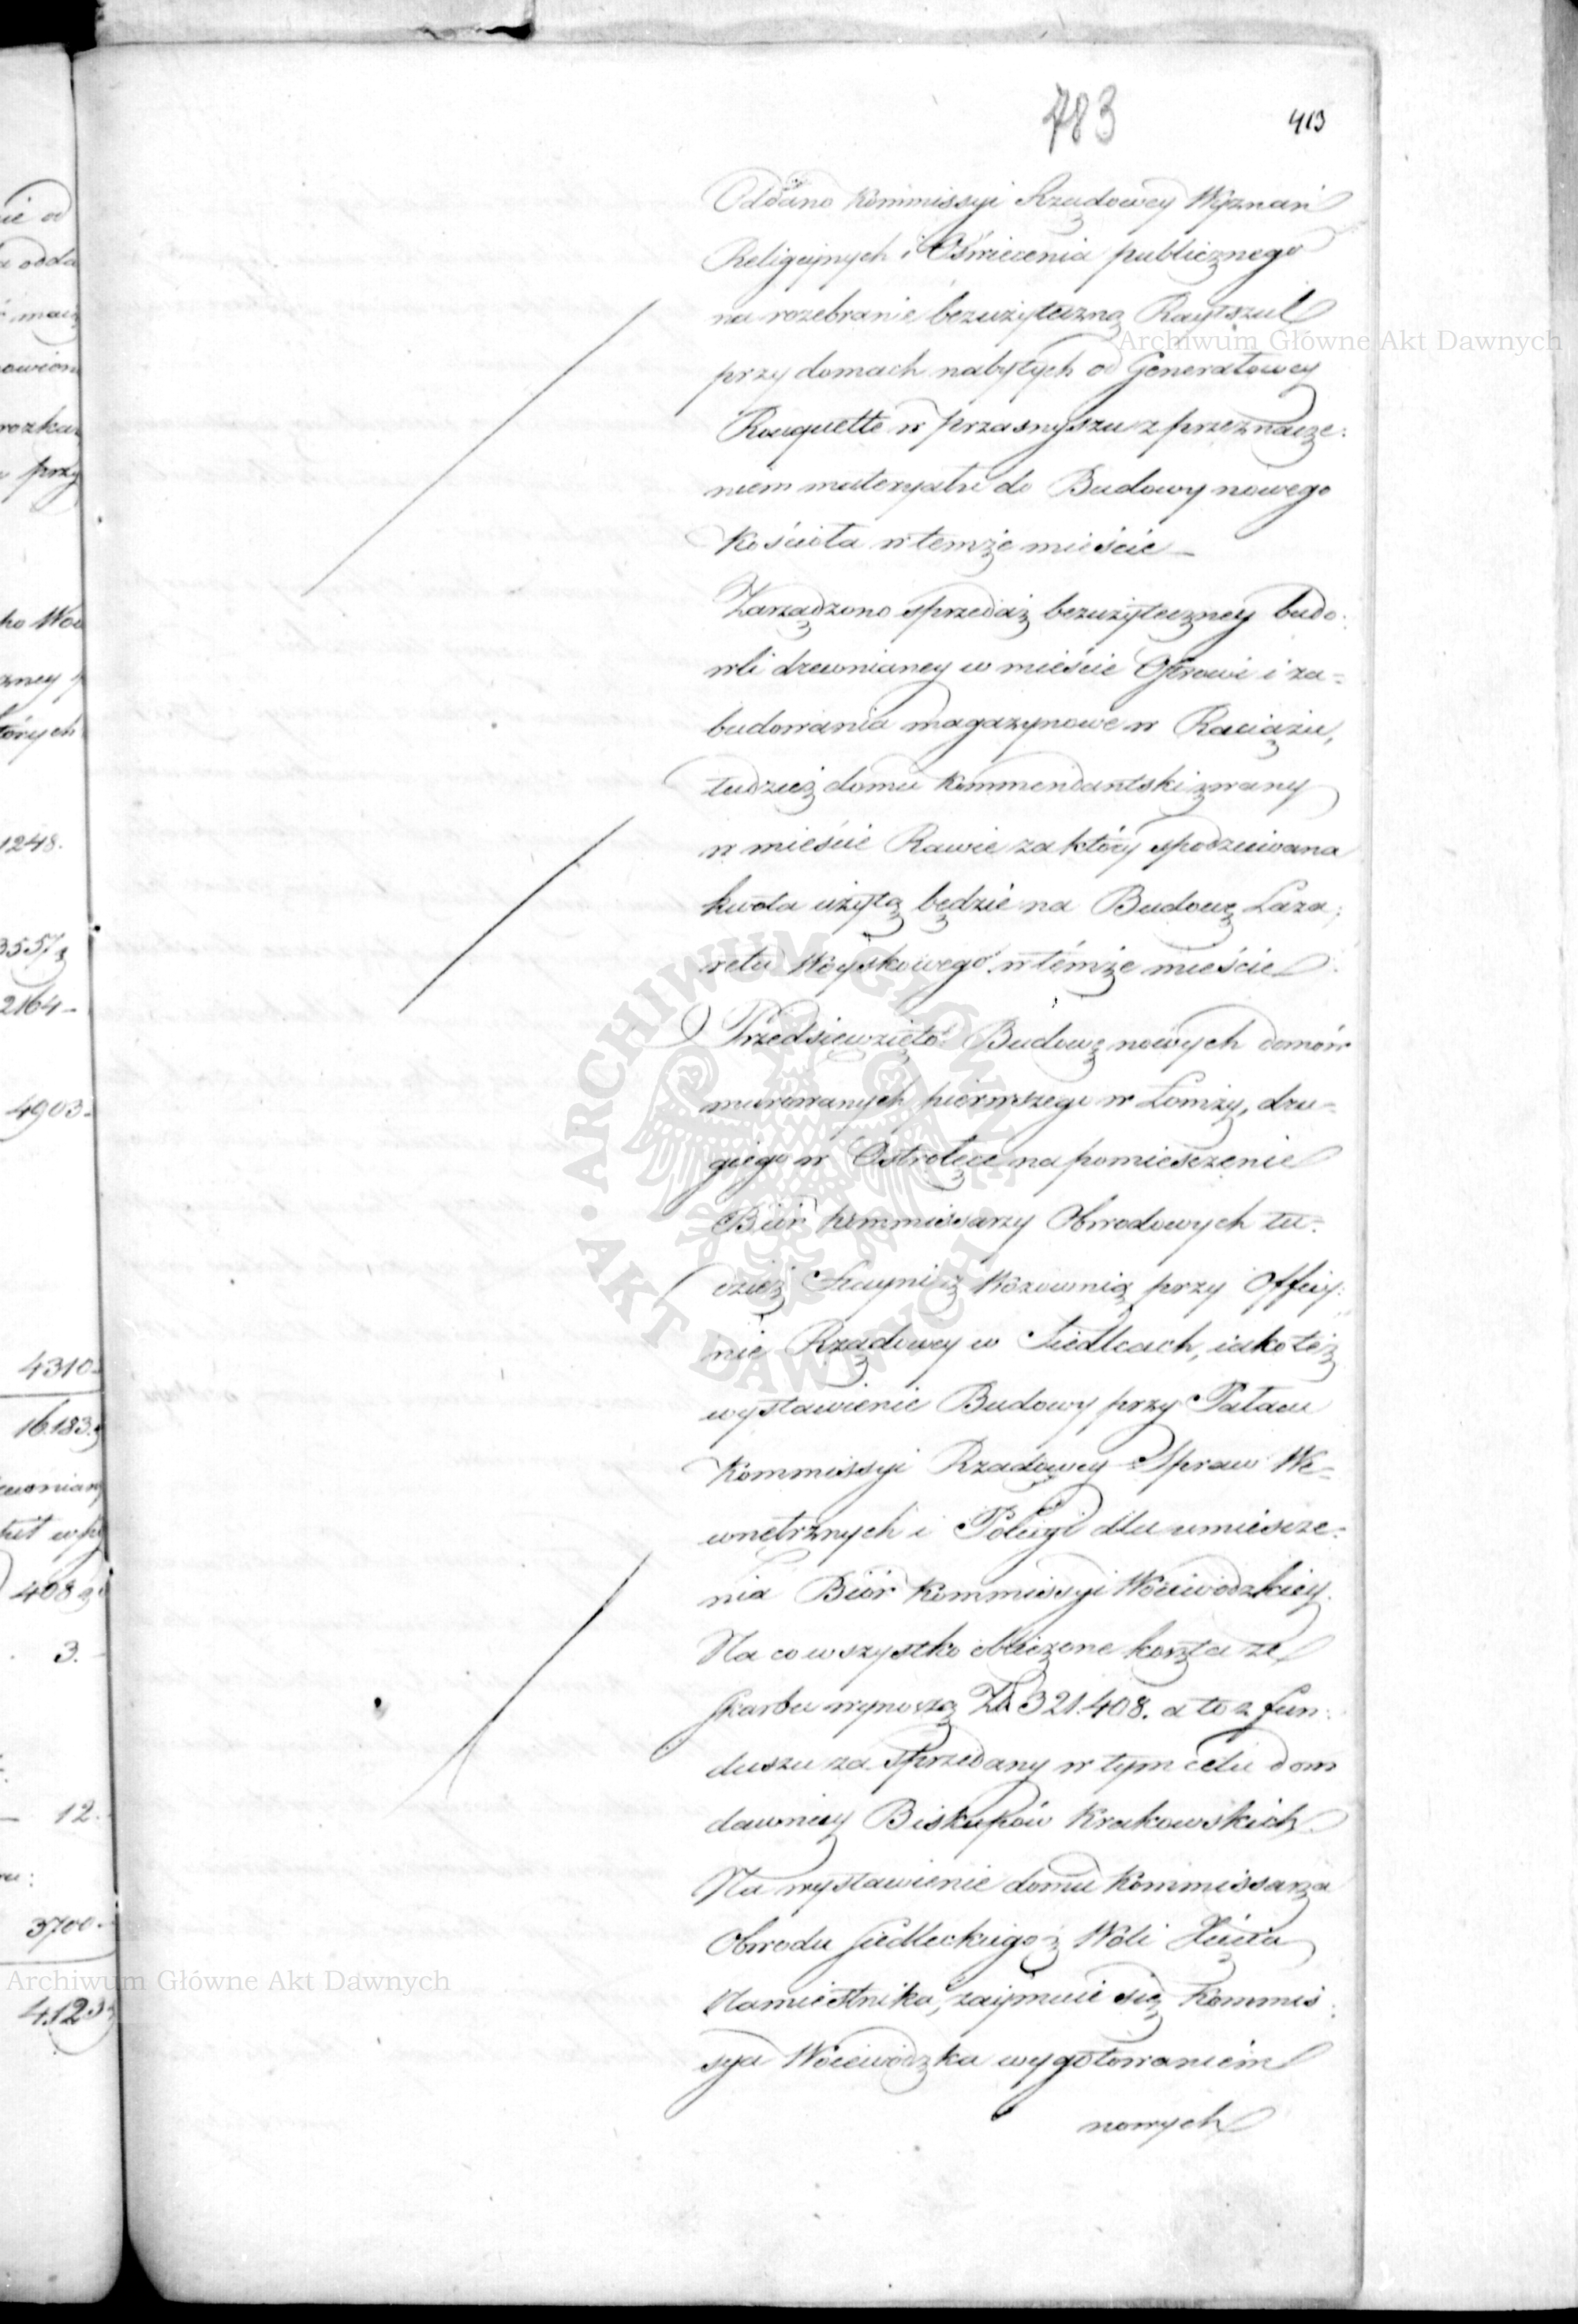 783
413
Oddano Kommissyi Rządowey Wyznań
Religijnych i Oświecenia publicznego
na rozebranie bezużyteczną Raytszul
przy domach nabytych od Generałowey
Rouquette w Przasnyszu z przeznacze:
niem materyału do Budowy nowego
Kościoła w temże mieście –
Zarządzono sprzedaż bezużyteczney budo:
wli drewnianey w mieście i za=
budowania magazynowe w Raciążu,
tudzież domu Kommendantski zwany
w mieście Rawie za który spodziewana
kwota użytą będzie na Budowę Laza:
retu Woyskowego w témże mieście
Przedsięwzięto Budowę nowych domów
murowanych pierwszego w Łomży, dru=
giego w Ostrołęce na pomieszczenie
Biór Kommissarzy Obwodowych tu=
dzież Stayni z Wozownią przy Offi:
nie Rządowey w Siedlcach, iako też
wystawienie Budowy przy Pałacu
Kommissyi Rządowey Spraw We=
wnętrznych i Policyi dla umieszcze:
nia Biór Kommissyi Woiewódzkiey.
Na co wszystko obliczone koszta ze
Skarbu wynoszą Zł 321.408. a to z fun:
duszu za sprzedany w tym celu dom
dawniey Biskupów Krakowskich.
Na wystawienie domu Kommissarza
Obwodu Siedleckiego z Woli Xięcia
Namiestnika, zaymuie się Kommis:
sya Woiewódzka wygotowaniem
nowych
ie od
a odda
rozka
przy
ho Woi
których
1248.
3557
2164 –
4903.
4310
16.183.
408
3.
12.
3700.
Archiwum Główne Akt Dawnych
Archiwum Główne Akt Dawnych
ARCHIWUM GŁÓWNE · AKT DAWNYCH ·